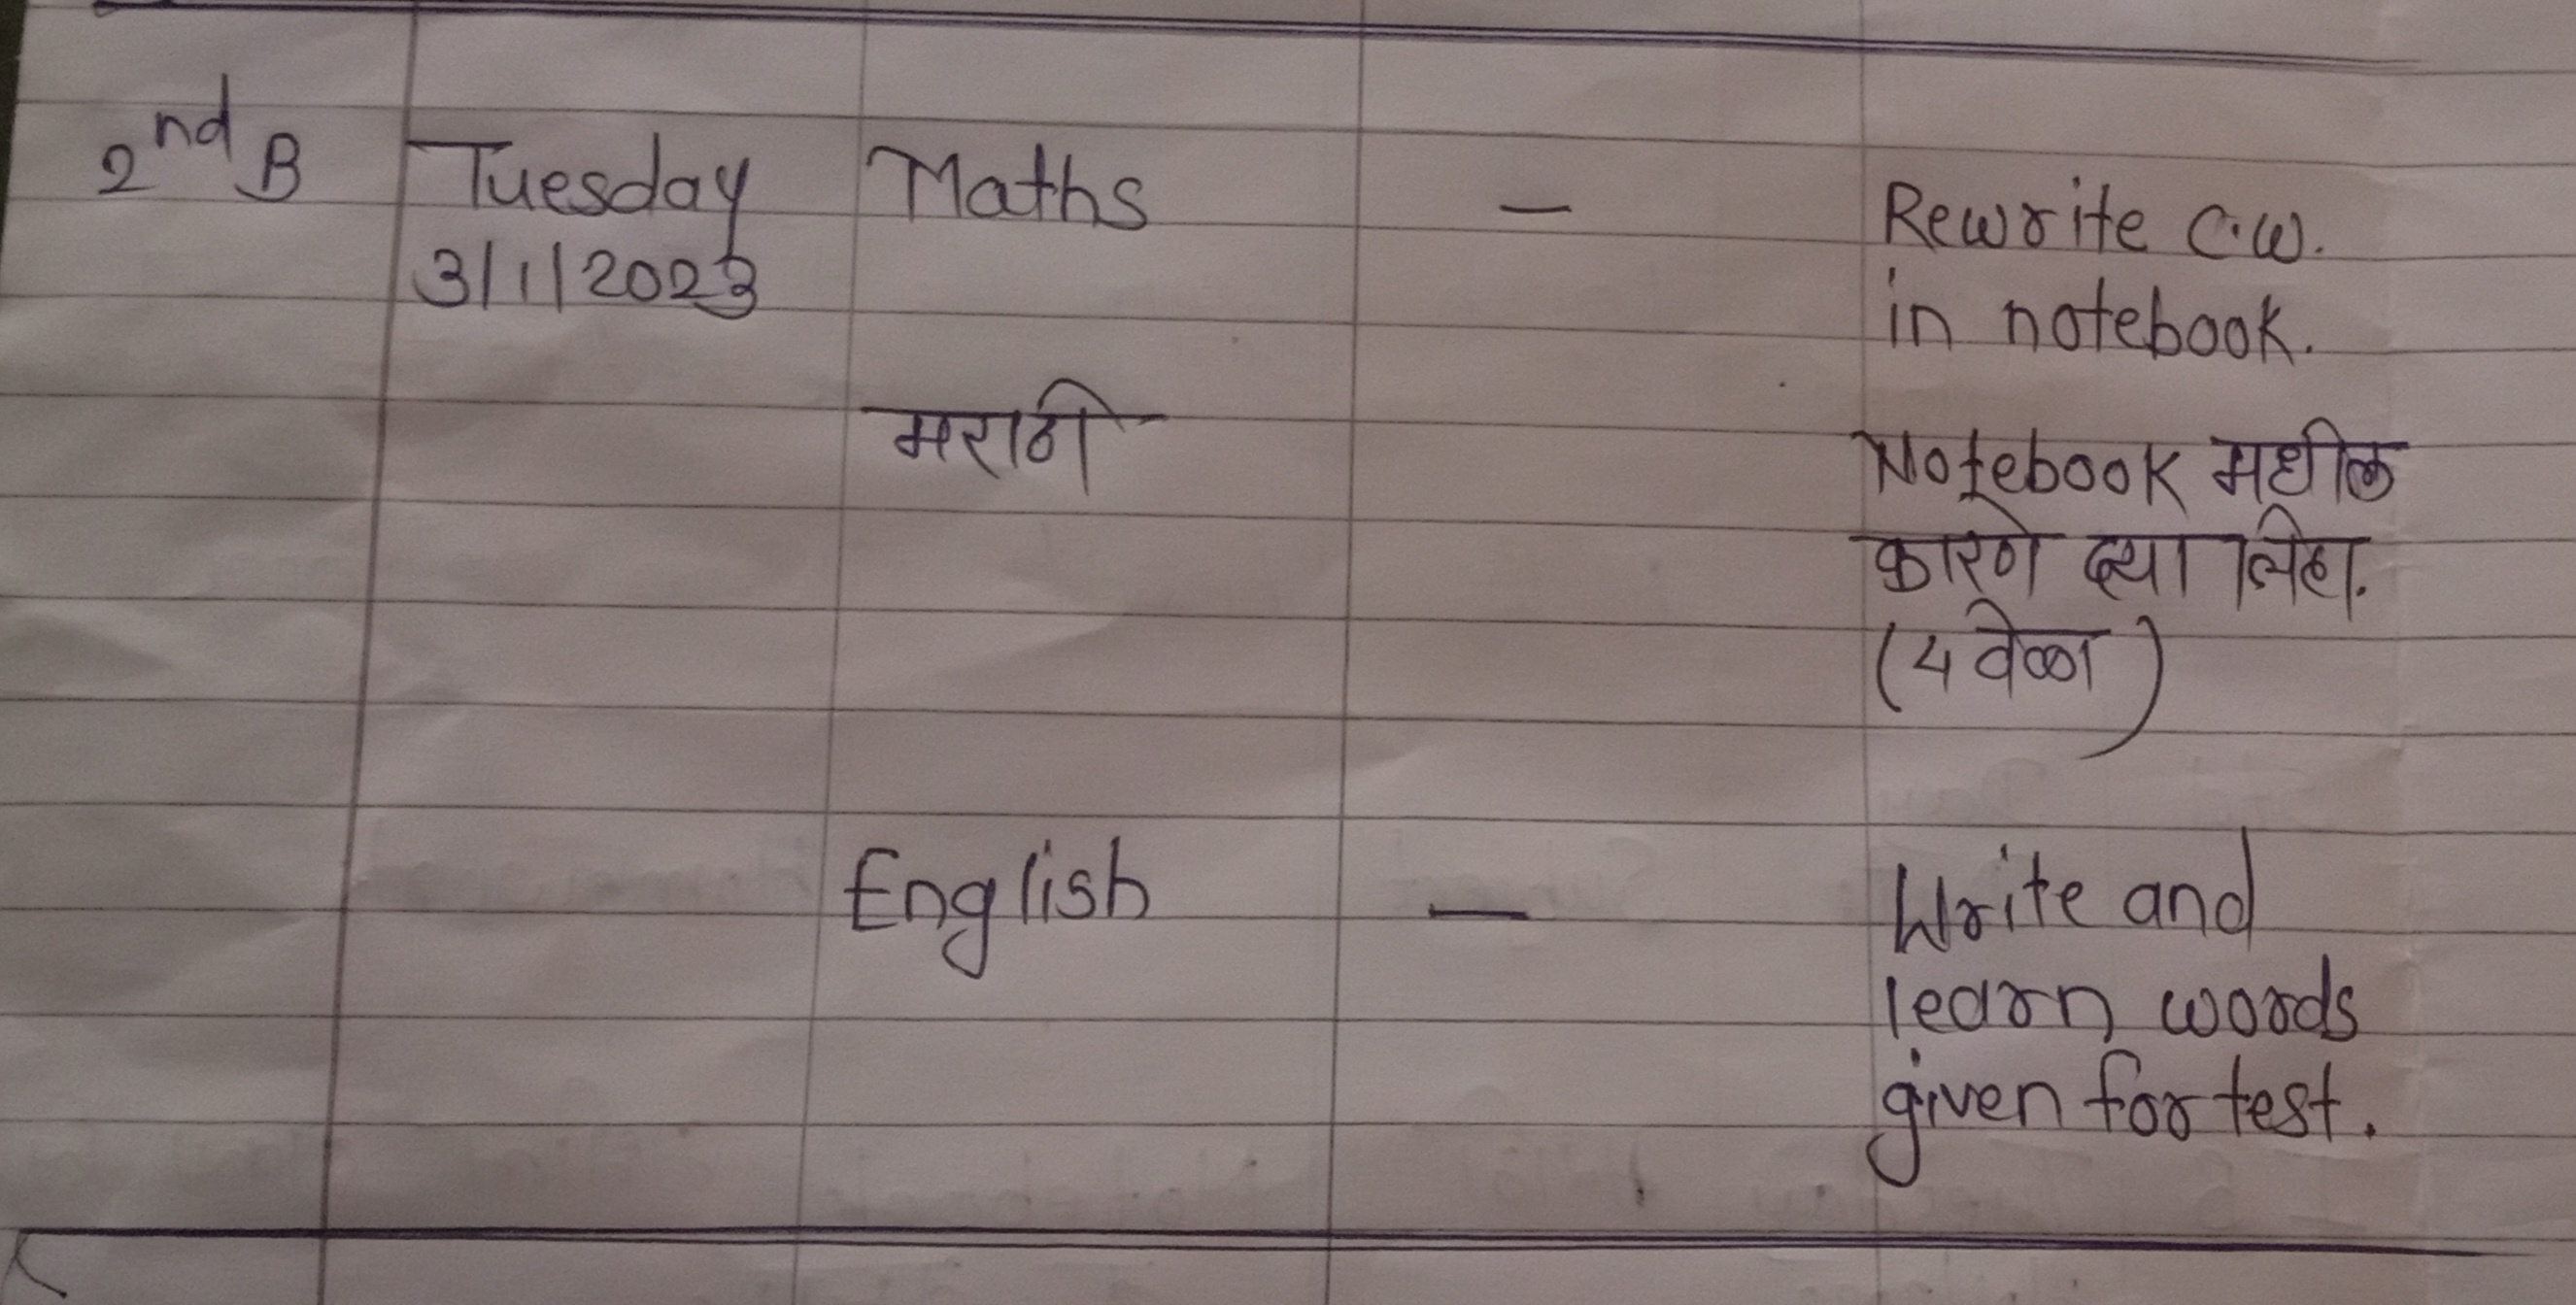 2nd B Tuesday Maths — Rewrite C.W.
3/1/2023 in notebook.
मराठी Notebook मधील
कारणे द्या लिहा.
(4 वेळा)
English — Write and
learn words
given for test.